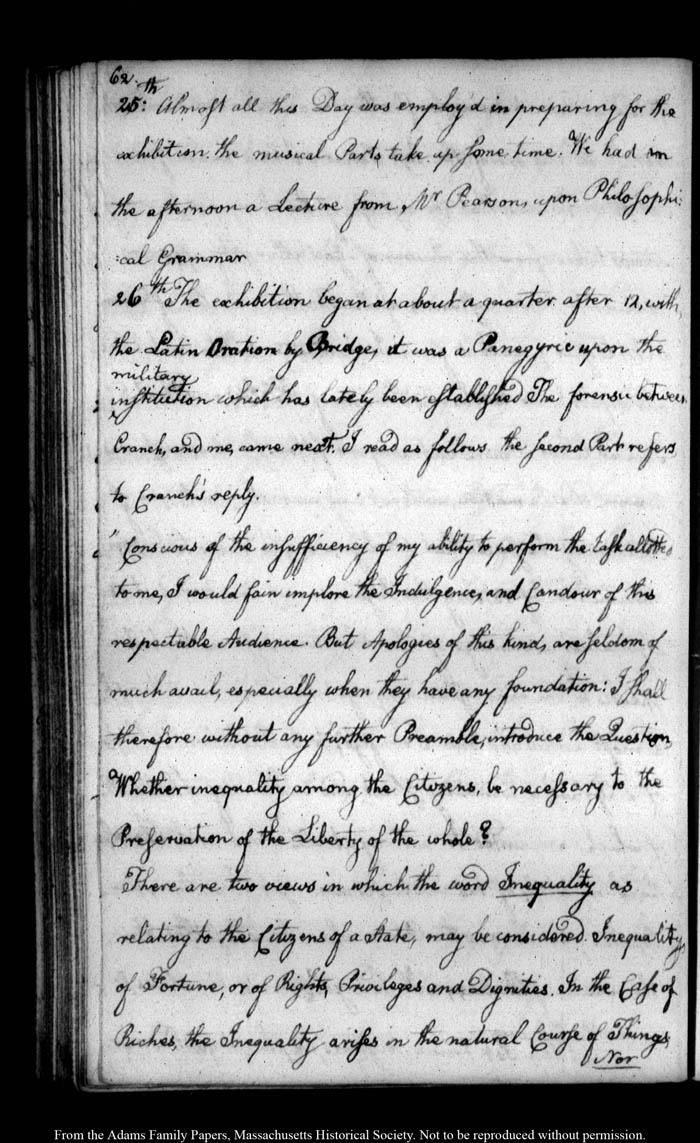 62.
25:th Almost all this Day was employ'd in preparing for the
exhibition. the musical Parts take up some time. We had in
the afternoon a Lecture from Mr Pearson, upon Philosophi:
:cal Grammar
26th The exhibition began at about a quarter after 12, with
the Latin Oration by Bridge, it was a Panegyric upon the
military
institution which has lately been established The forensic between
Cranch, and me, came next. I read as follows. the second Part refers
to Cranch's reply.
" Conscious of the insufficiency of my ability to perform the task allotted
to me, I would fain implore the Indulgence, and Candour of this
respectable Audience. But Apologies of this kind, are seldom of
much avail, especially when they have any foundation: I shall
therefore without any further Preamble, introduce the Question,
Whether inequality among the Citizens, be necessary to the
Preservation of the Liberty of the whole?
There are two views in which the word Inequality as
relating to the Citizens of a State, may be considered. Inequality,
of Fortune, or of Rights, Privileges and Dignities. In the Case of
Riches, the Inequality arises in the natural Course of Things,
Nor
From the Adams Family Papers, Massachusetts Historical Society. Not to be reproduced without permission.